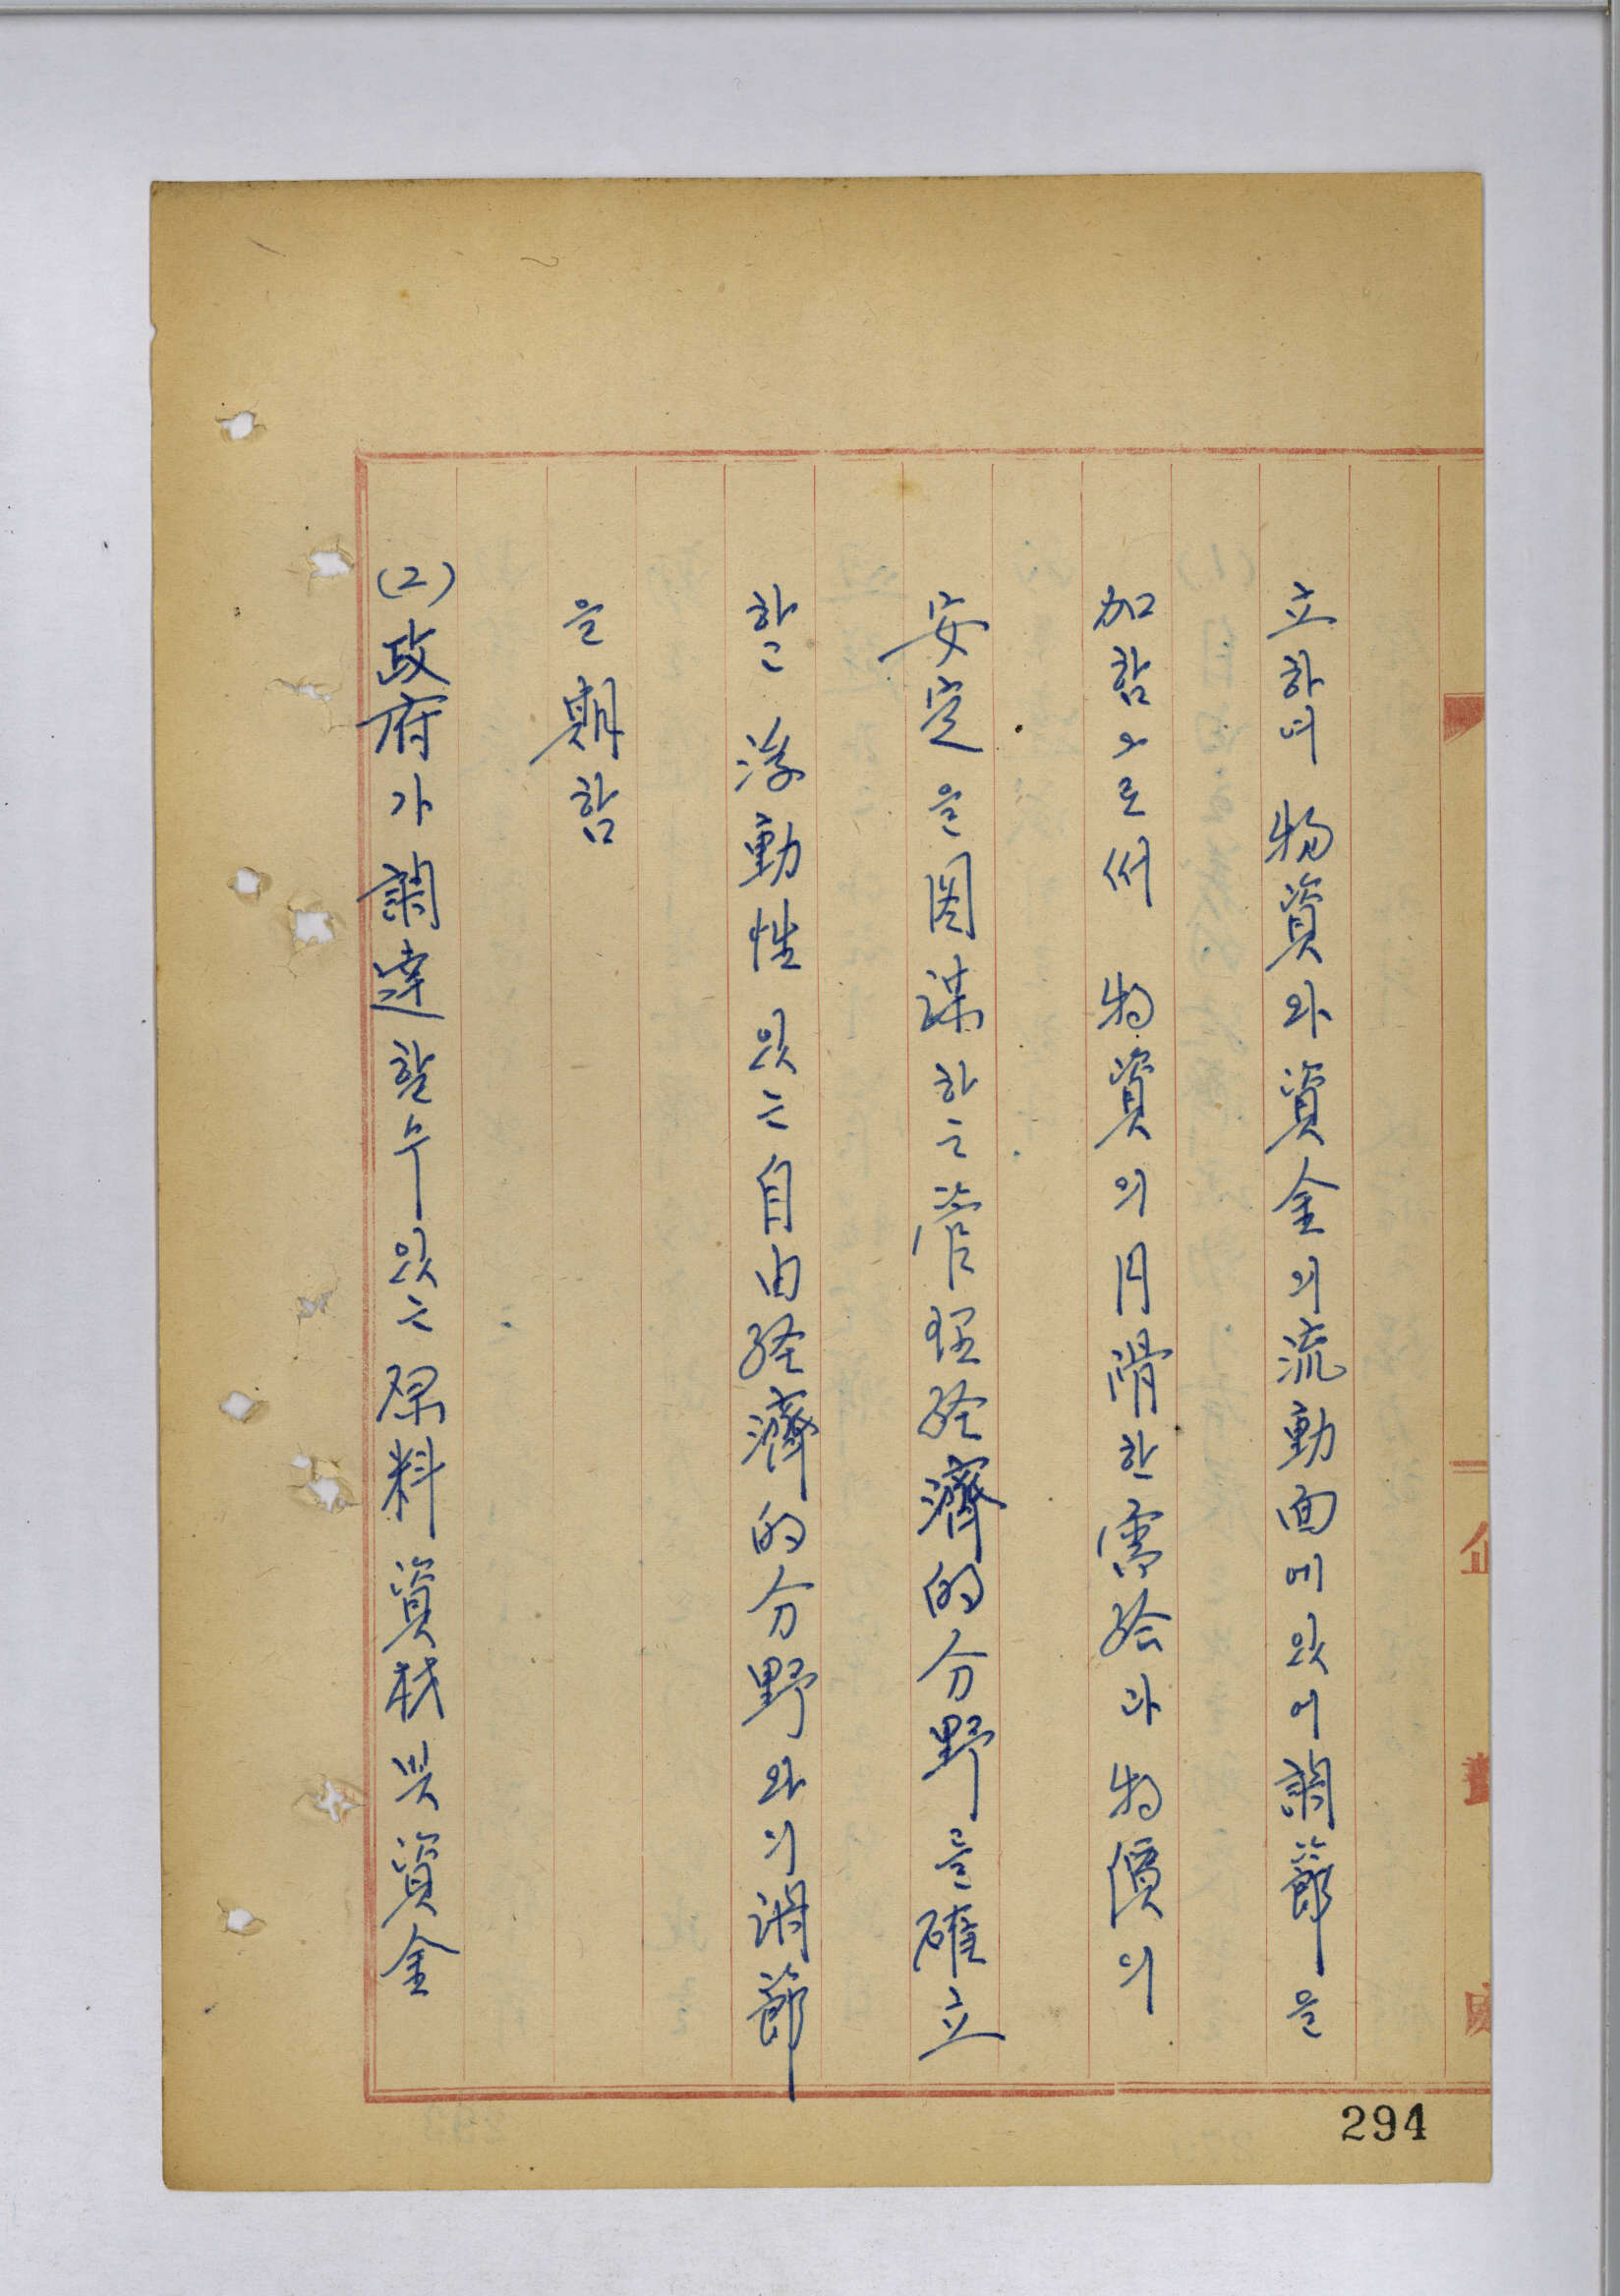 立하며 物資와 資金의 流動面에 있어 調節을
加함으로써 物資의 円滑한 需給과 物價의
安定을 図謀하고 管理経濟的 分野를 確立
하고 浮動性 있는 自由経濟的 分野와의 調節
을 期함
(2) 政府가 調達할 수 있는 原料 資材 및 資金
企畫處
294